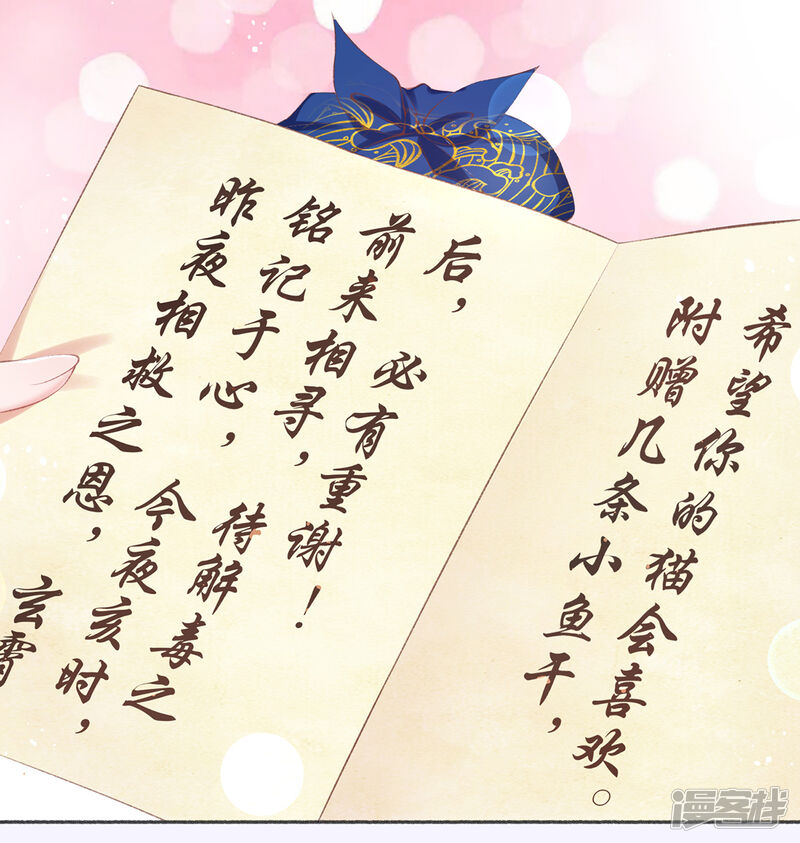 昨夜相救之恩，
铭记于心，今夜亥时，
前来相寻，待解毒之
后，必有重谢！
玄霄
附赠几条小鱼干，
希望你的猫会喜欢。
漫客栈